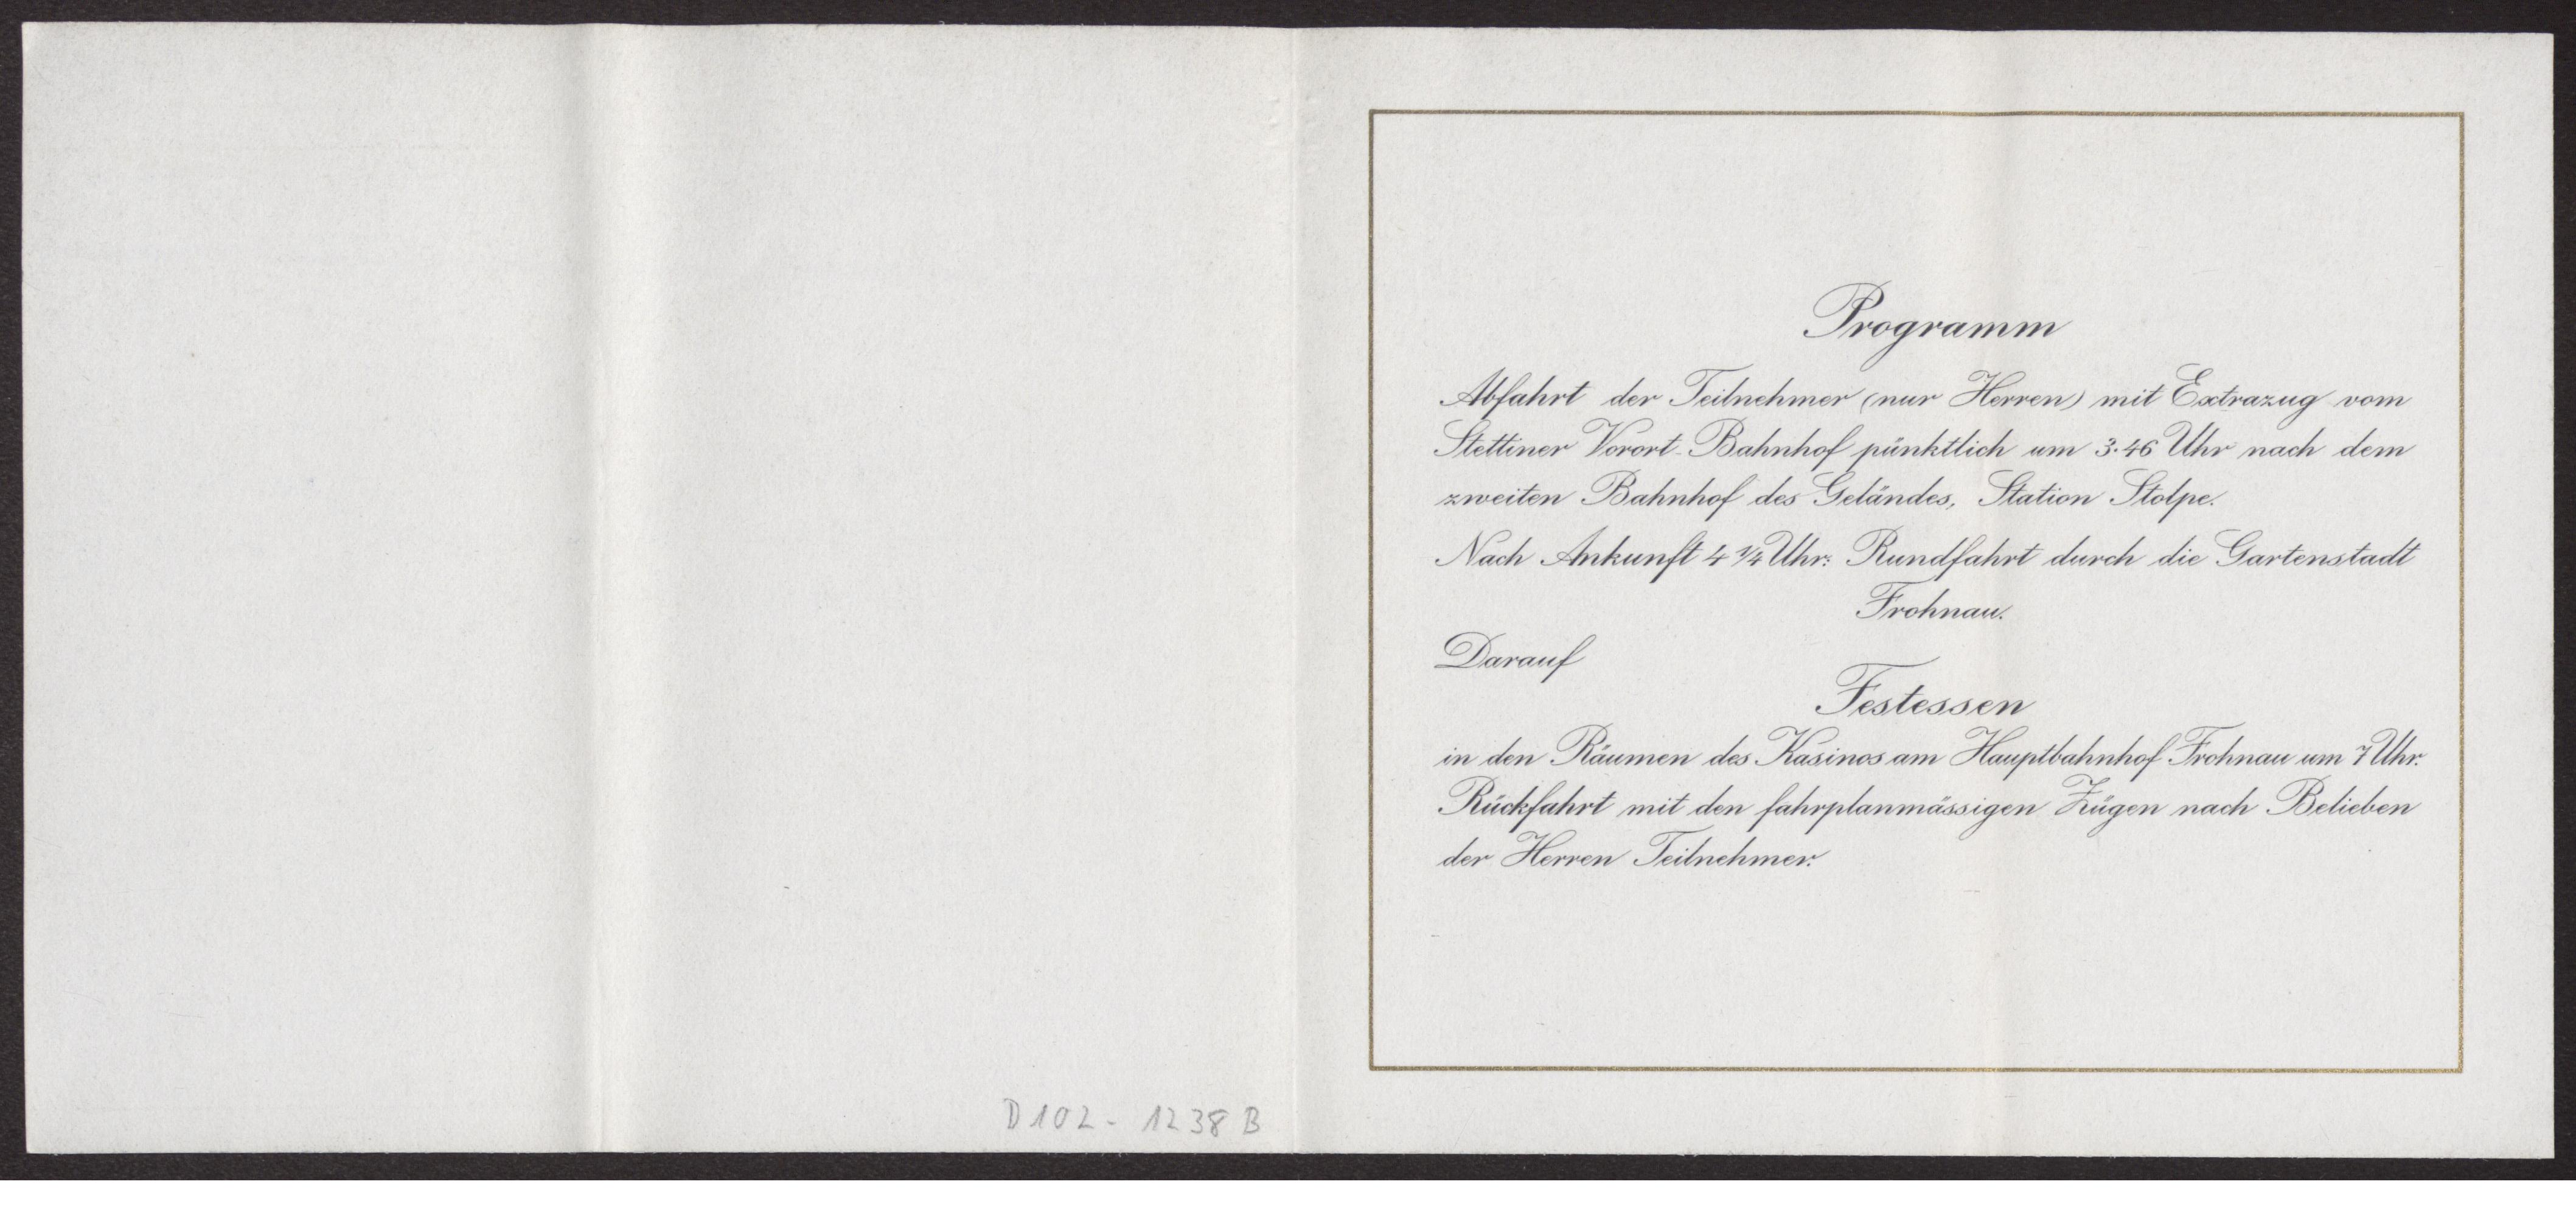 Programm
Abfahrt der Teilnehmer (nur Herren) mit Extrazug vom
Stettiner Vorort-Bahnhof pünktlich um 3.46 Uhr nach dem
zweiten Bahnhof des Geländes, Station Stolpe.
Nach Ankunft 4 1/4 Uhr: Rundfahrt durch die Gartenstadt
Frohnau.
Darauf
Festessen
in den Räumen des Kasinos am Hauptbahnhof Frohnau um 7 Uhr.
Rückfahrt mit den fahrplanmässigen Zügen nach Belieben
der Herren Teilnehmer.
D102 - 1238 B